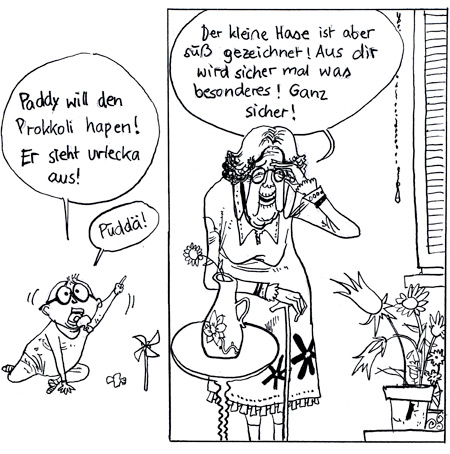 Paddy will den
Prokkoli hapen!
Er sieht urlecka
aus!
Püddä!
Der kleine Hase ist aber
süß gezeichnet! Aus dir
wird sicher mal was
besonderes! Ganz
sicher!